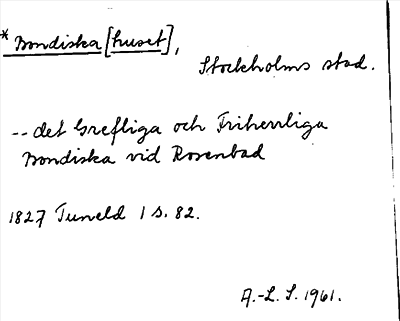 * Bondiska [huset],
Stockholms stad.
-- det Grefliga och Friherrliga
Bondiska vid Rosenbad
1827 Tuneld 1 s. 82.
A.-L. S. 1961.